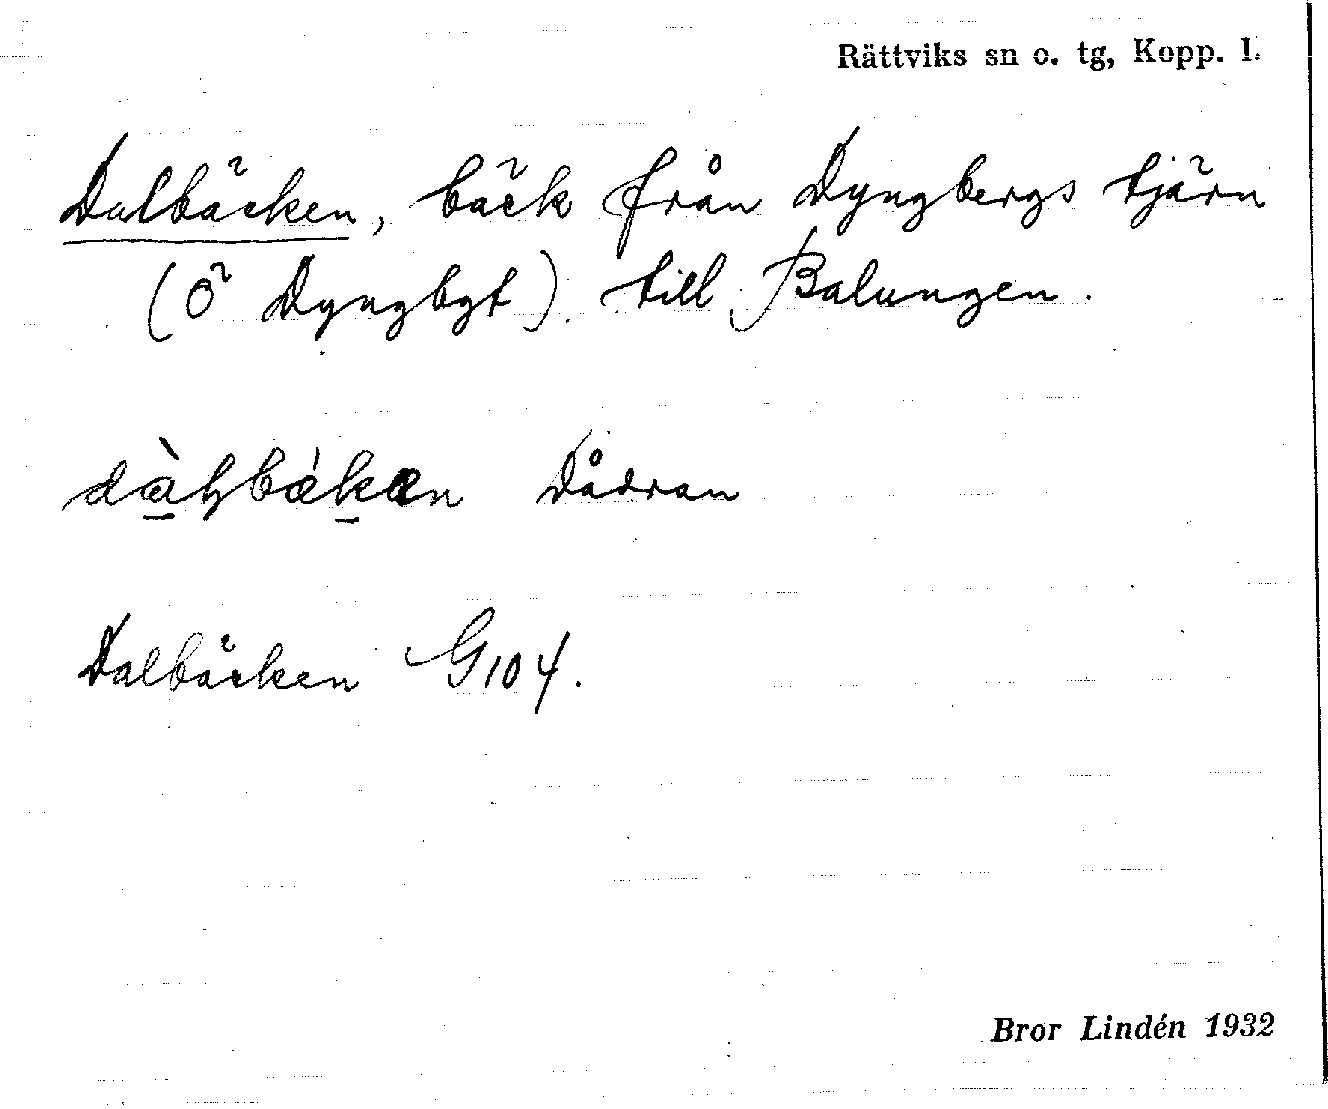 Rättviks sn o. tg, Kopp. l.
Dalbäcken, bäck från Dyngbergs tjärn
(Ö Dyngbgt) till Balungen.
Dådran
Dalbäcken G104.
Bror Lindén 1932